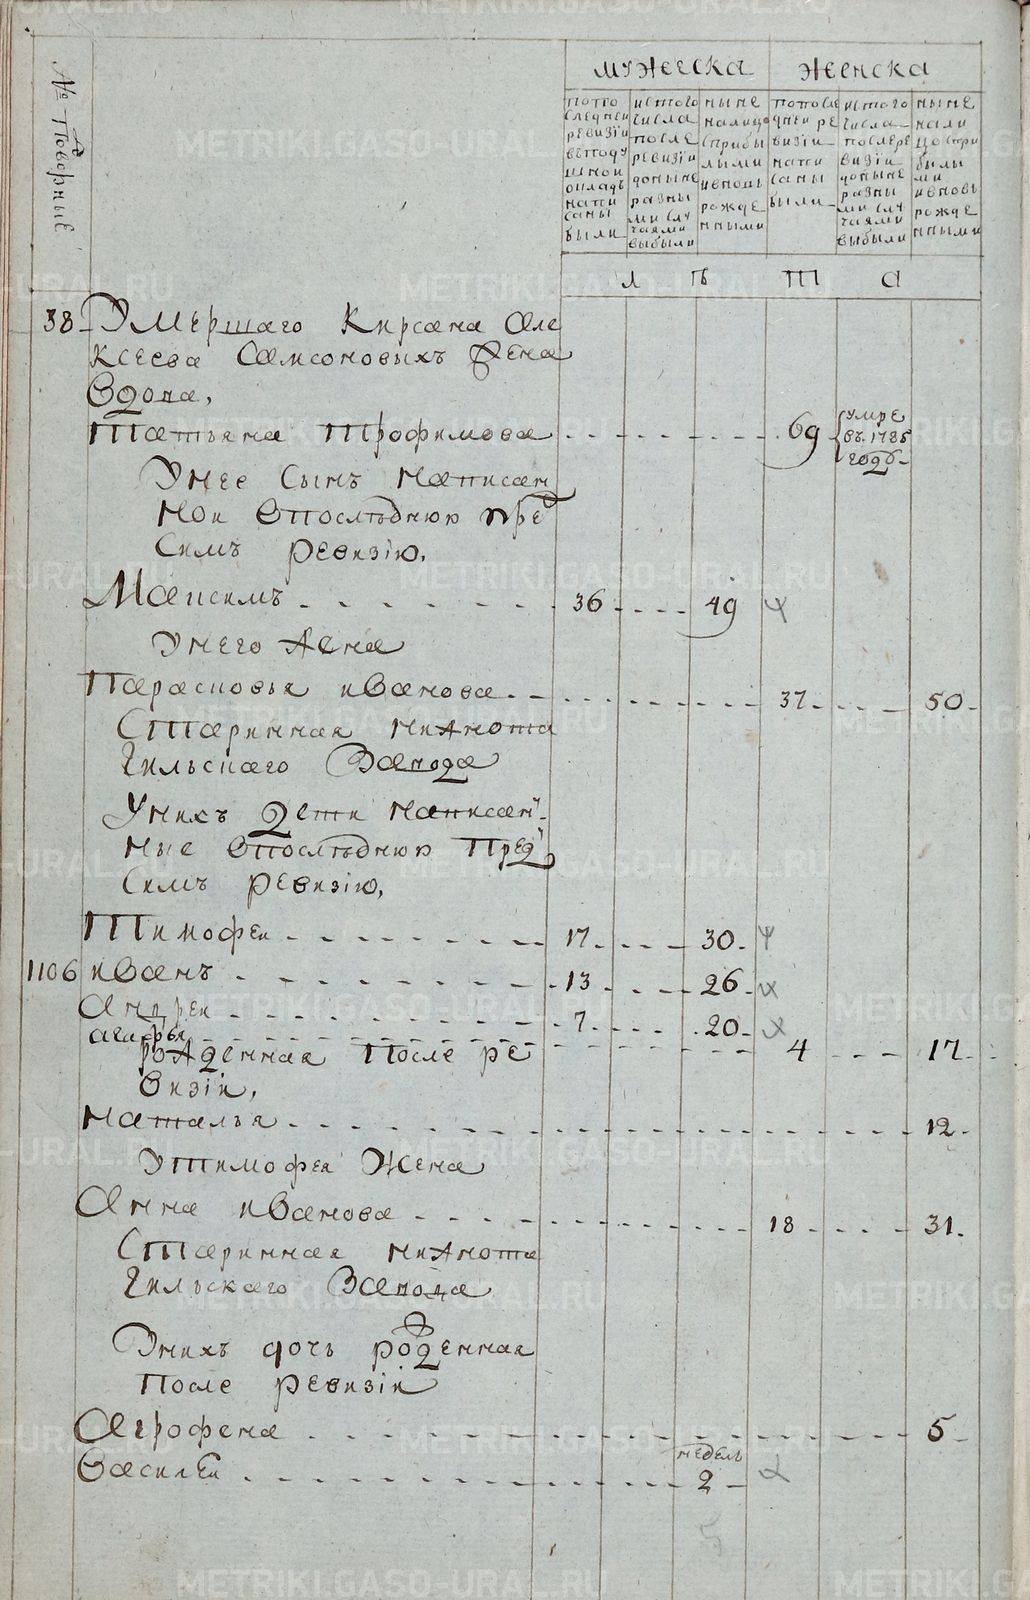 METRIKI.GASO-URAL.RU
№ Подворные
мужеска
женска
попо
следней
ревизiи
въподу
шной
окладъ
напи
саны
были
истого
числа
после
ревизiи
доныне
разны
ми слу
чаями
выбыли
ныне
налицо
сприбы
лыми
ивновь
рожде
нными
попосле
дней ре
визiи
напи
саны
были
истого
числа
послере
визiи
доныне
разны
ми слу
чаями
выбыли
ныне
нали
цо спри
былы
ми
ивновь
рожде
нными
л ѣ т а
38 Умершаго Кирсана Але
ксеева Самсоновыхъ жена
вдова,
Татьяна Трофимова 69 умре
въ 1785
годе
Унее сынъ написан
ной впоследнюю пред
симъ ревизiю,
Максимъ 36 49
Унего жена
Парасковья иванова 37 50
Старинная нижнота
гильскаго завода
Унихъ дети написан
ные впоследнюю пред
симъ ревизiю,
Тимофеи 17 30
1106 иванъ 13 26
Андреи 7 20
агафья 4 17
рожденная после ре
визiи,
наталья 12
Утимофея жена
Анна иванова 18 31
Старинная нижнота
гильскаго завода
Унихъ дочь рожденная
после ревизiи
Агрофена 5
Василеи недель
2